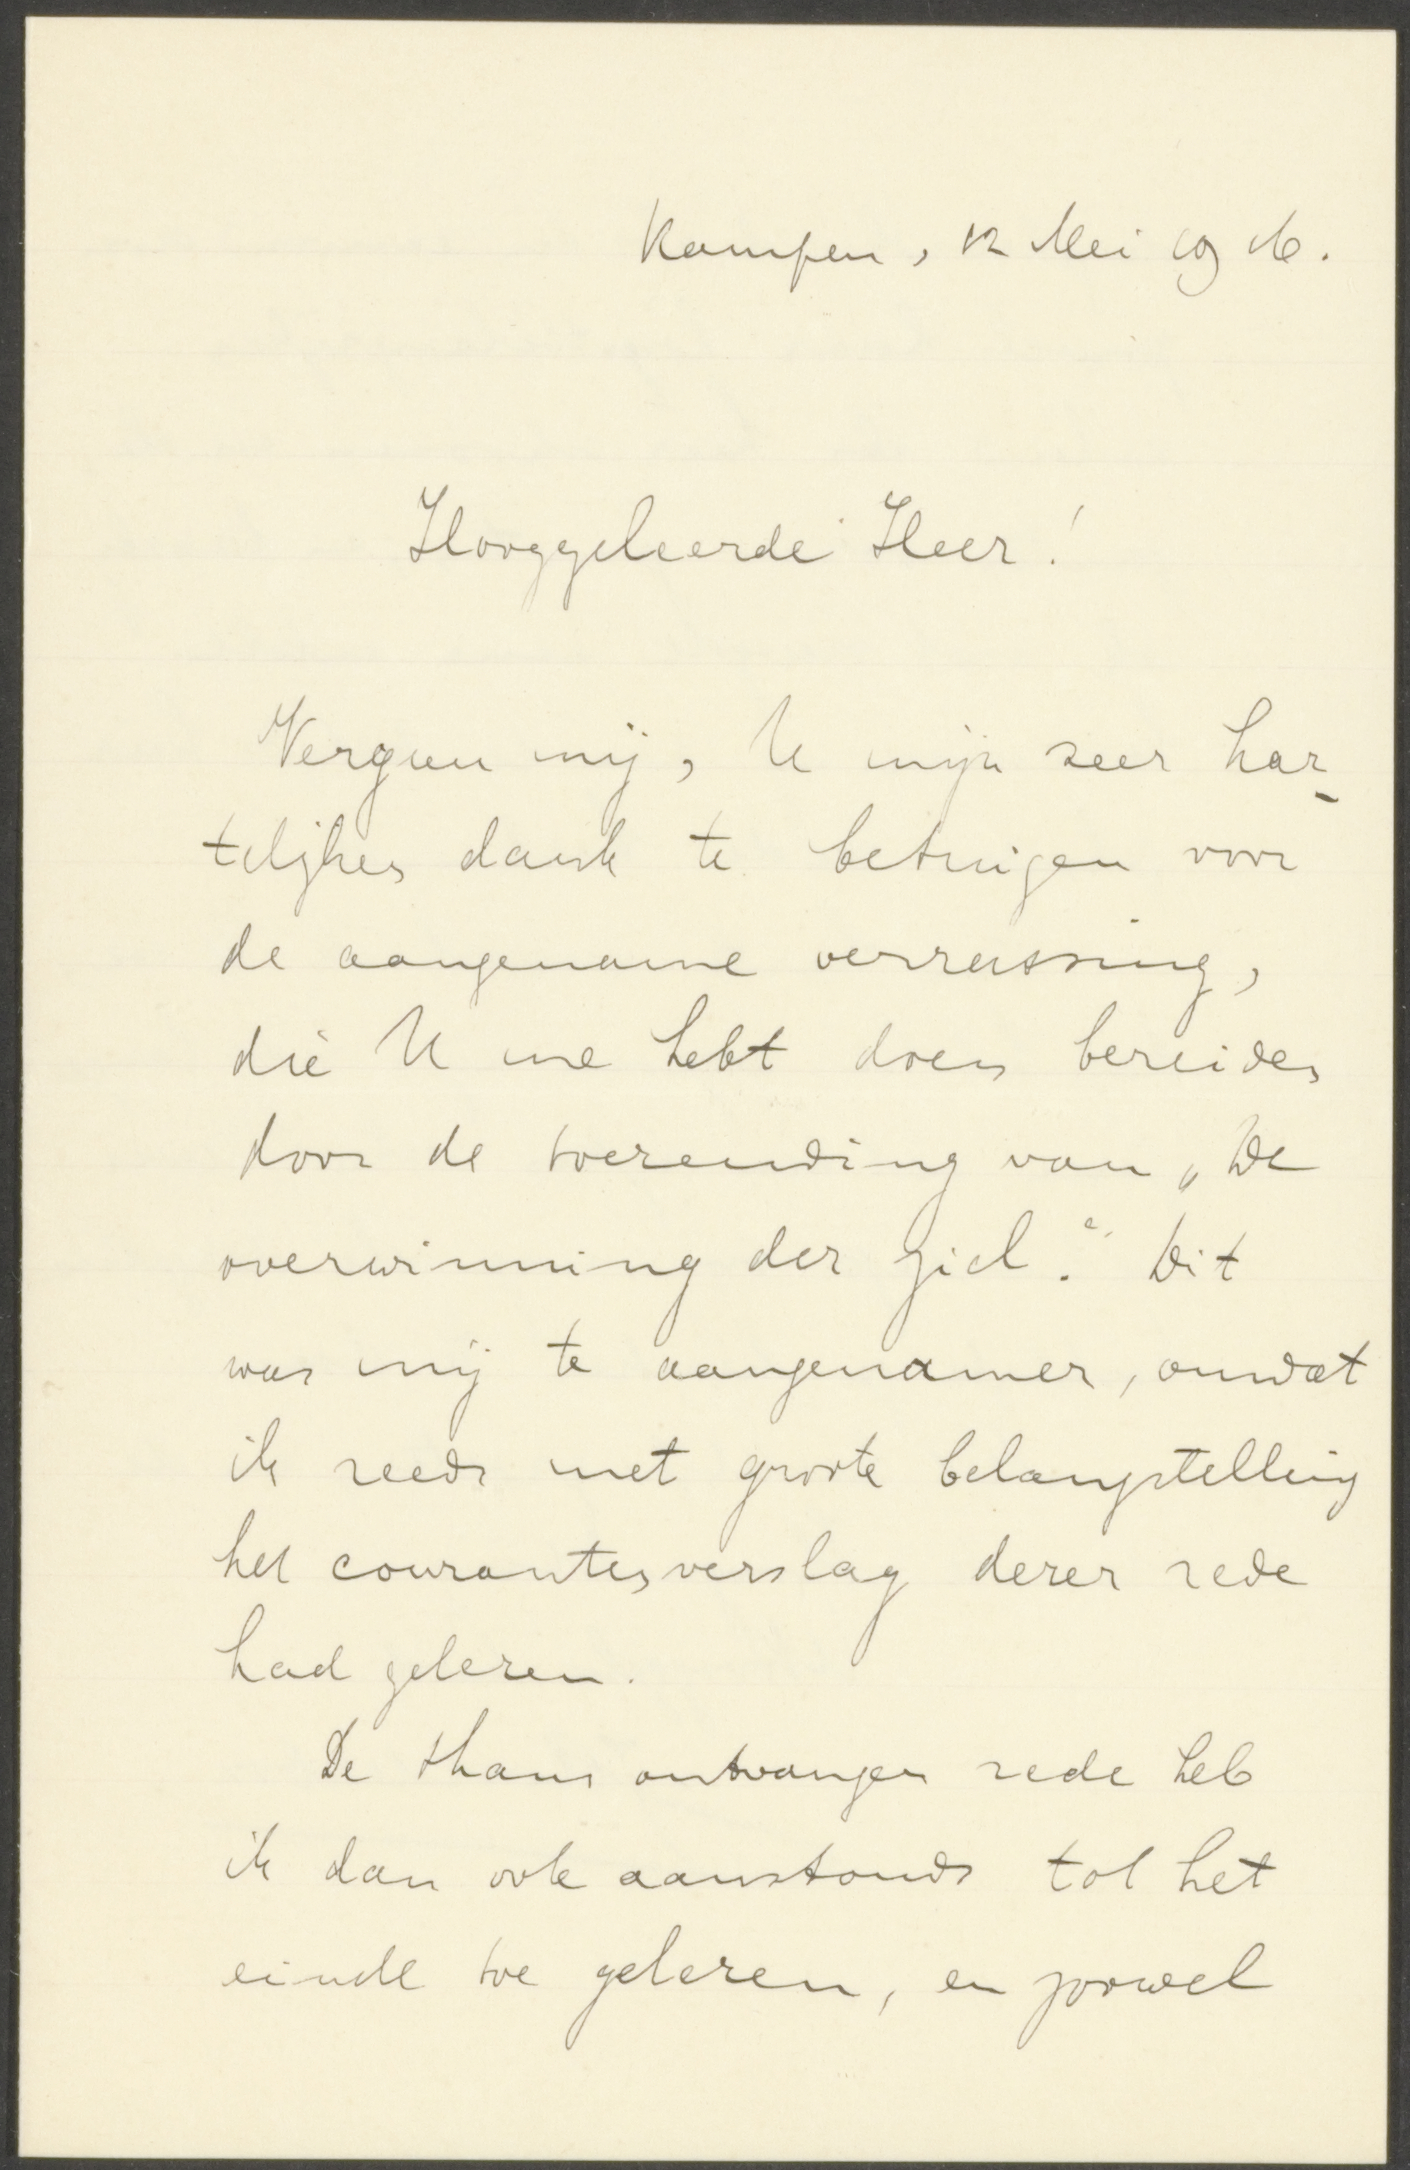 Kampen, 12 Mei 1916.
Hooggeleerde Heer!
Vergun mij, U mijn zeer har-
telijken dank te betuigen voor
de aangename verrassing,
die U me hebt doen bereiden
door de toezending van „De
overwinning der ziel." Dit
was mij te aangenamer, omdat
ik reeds met groote belangstelling
het courantenverslag dezer rede
had gelezen.
De thans ontvangen rede heb
ik dan ook aanstonds tot het
einde toe gelezen, en zoowel